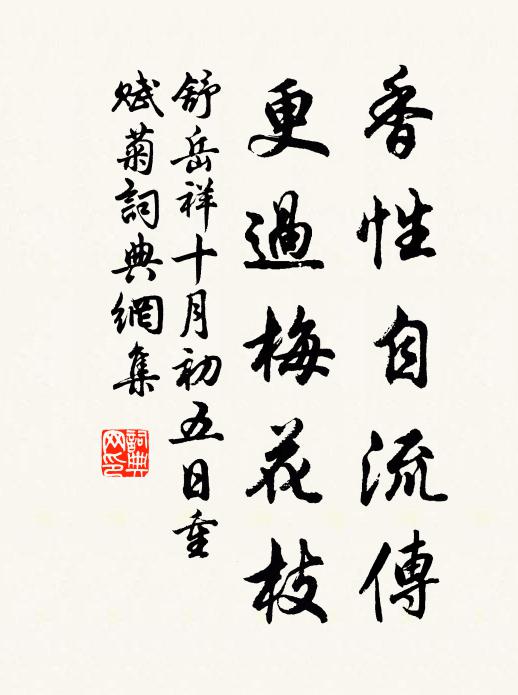 香性自流傳
更過梅花枝
舒岳祥十月初五日重
賦菊詞典網集
詞典
网印